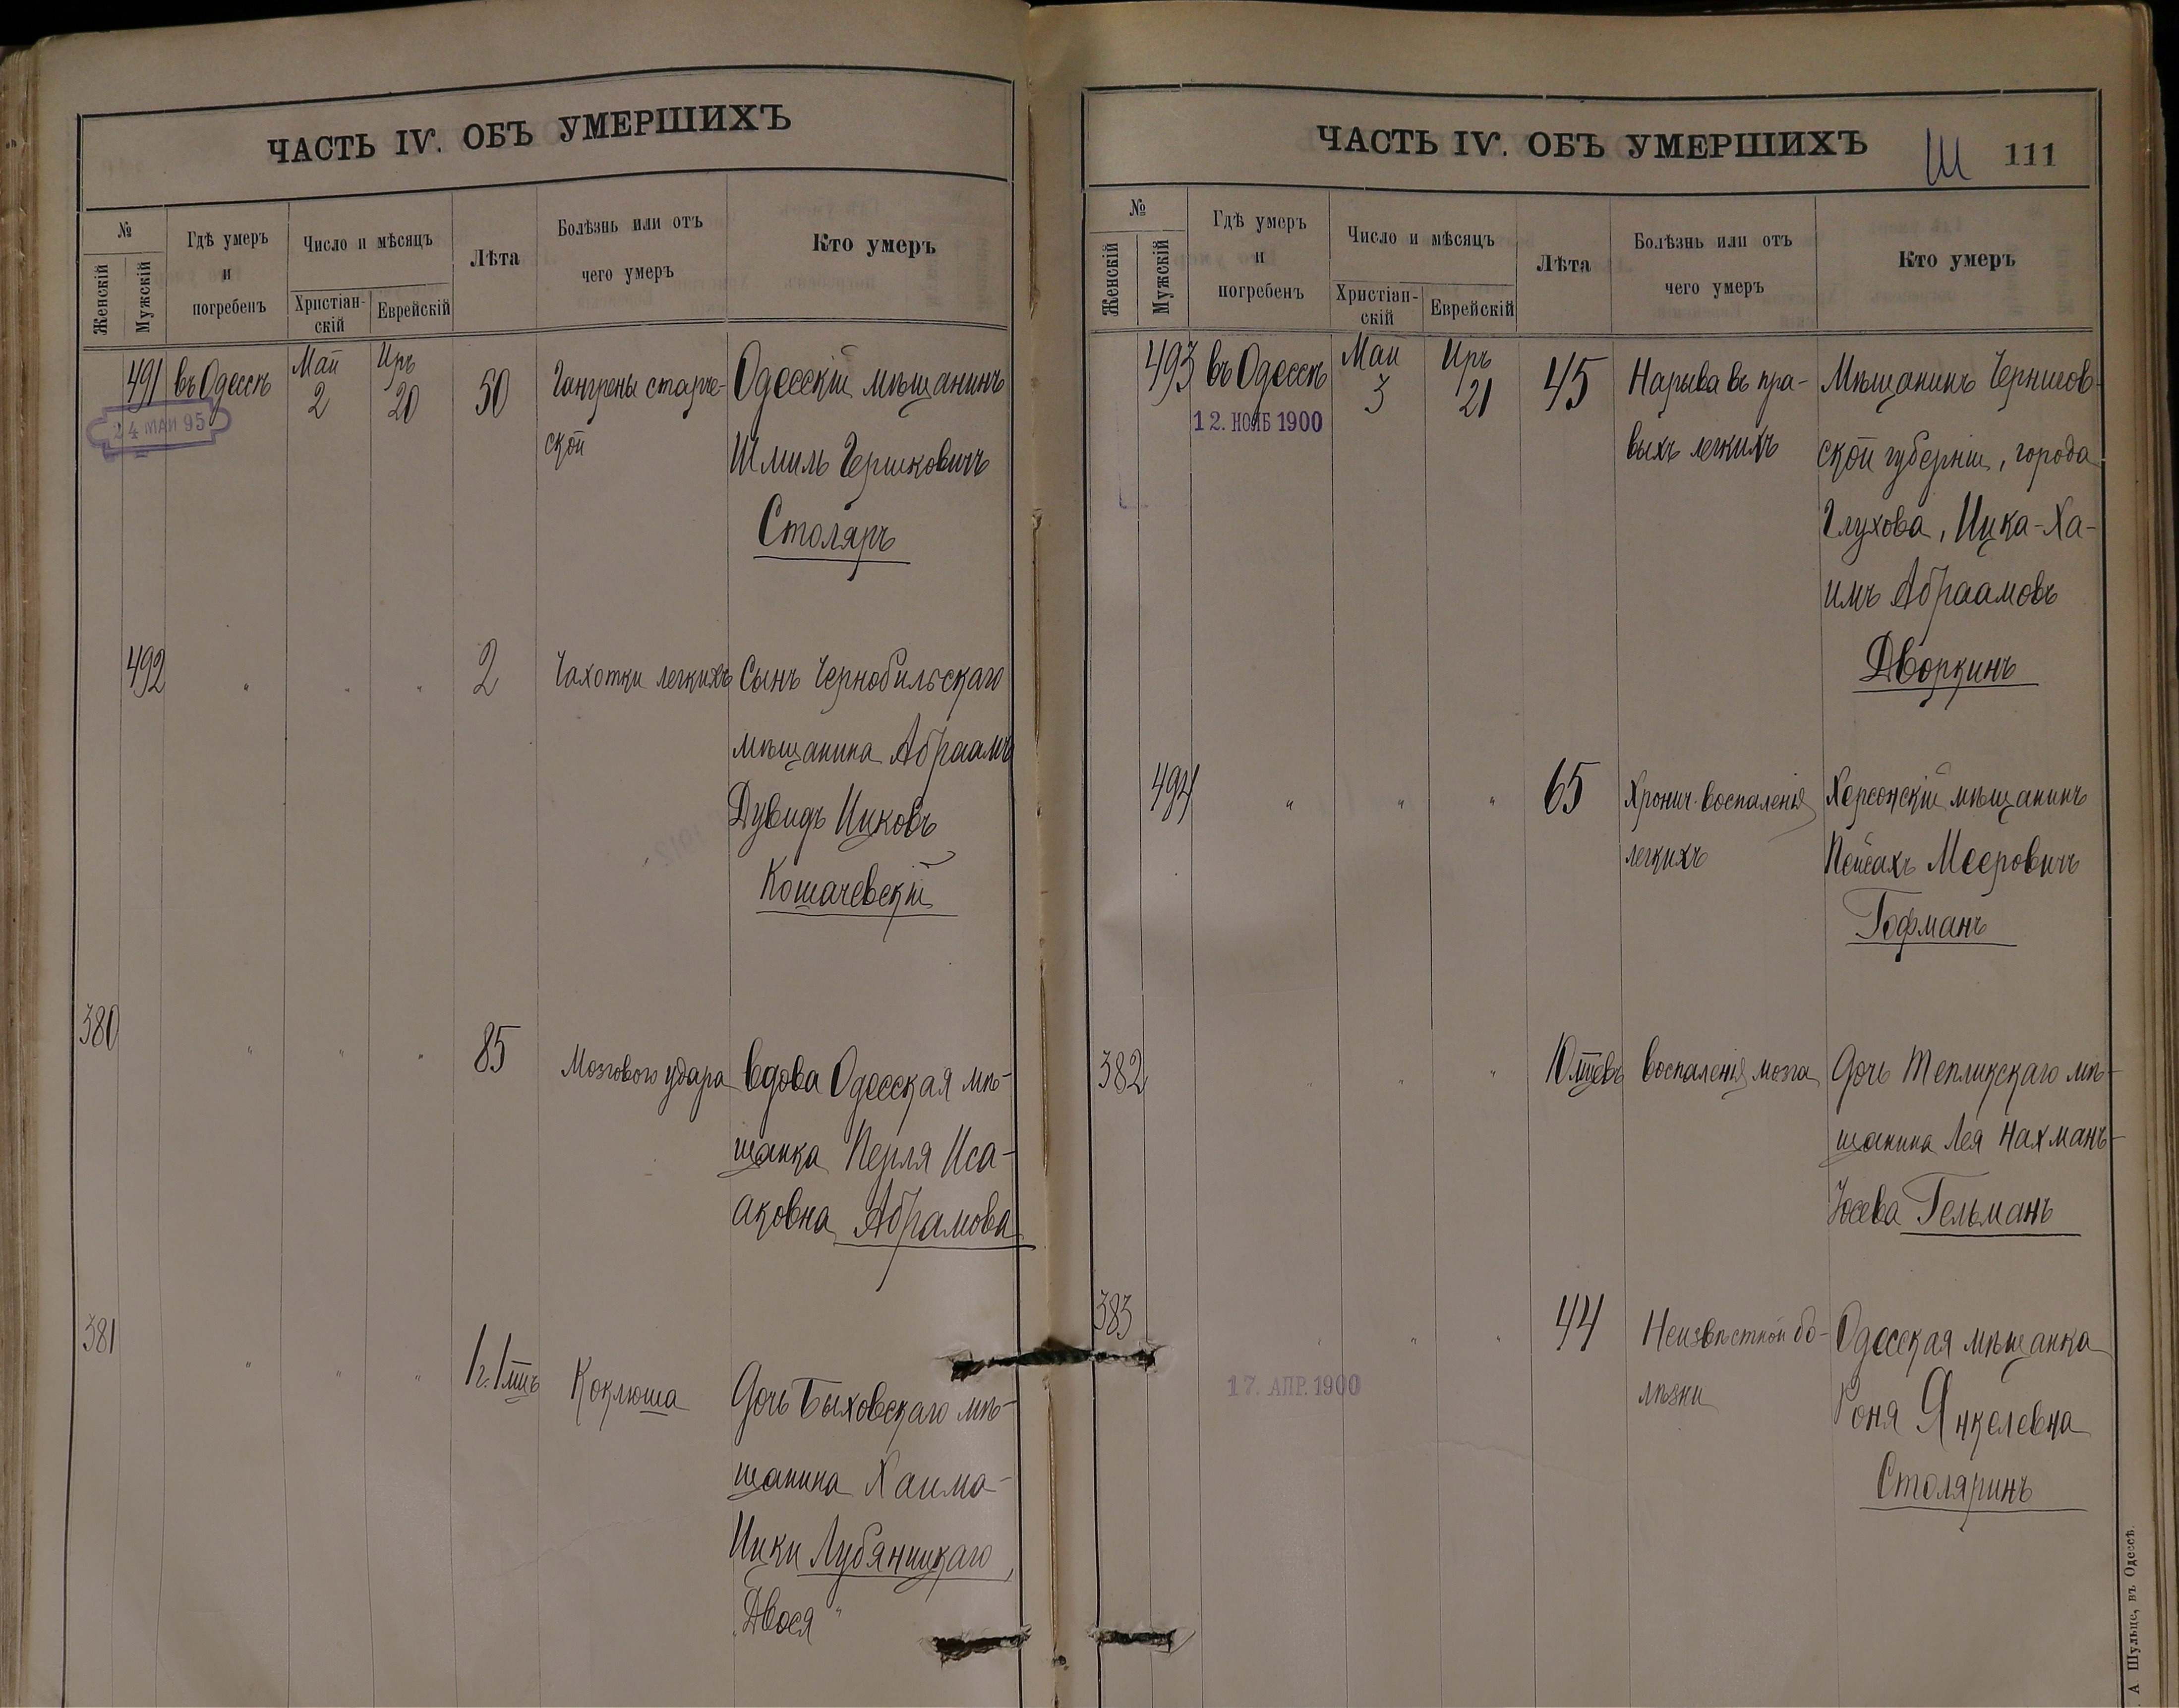 ЧАСТЬ IV. ОБЪ УМЕРШИХЪ
№
Женскій
Мужскій
Гдѣ умеръ
и
погребенъ
Число и мѣсяцъ
Христіан-
скій
Еврейскій
Лѣта
Болѣзнь или отъ
чего умеръ
Кто умеръ
491 въ Одессѣ Май 2 Иръ 20 50 Гангрены старче- Одесскій мѣщанинъ
24 МАЙ 95
ской Шмиль Гершковичъ
Столяръ
492 " " " 2 Чахотки легкихъ Сынъ Чернобильскаго
мѣщанина Абраамъ
Дувидъ Ицковъ
Кошачевскій
380 " " " 85 Мозгового удара вдова Одесская мѣ-
щанка Перля Иса-
аковна Абрамова
381 " " " 1 г. 1 мцъ Коклюша Дочь Быховскаго мѣ-
щанина Хаима-
Ицки Лубяницкаго,
"Двося"
ЧАСТЬ IV. ОБЪ УМЕРШИХЪ
111
№
Женскій
Мужскій
Гдѣ умеръ
и
погребенъ
Число и мѣсяцъ
Христіан-
скій
Еврейскій
Лѣта
Болѣзнь или отъ
чего умеръ
Кто умеръ
493 въ Одессѣ Маи 3 Иръ 21 45 Нарыва въ пра- Мѣщанинъ Чернигов-
12. НОЯБ 1900
выхъ легкихъ ской губерніи, города
Глухова, Ицка-Ха-
имъ Абраамовъ
Дворкинъ
494 " " " 65 Хронич. воспаленія Херсонскій мѣщанинъ
легкихъ Пейсахъ Мееровичъ
Гофманъ
382 " " " 10 мцевъ воспаленія мозга Дочь Тепликскаго мѣ-
щанина Лея Нахманъ-
Іосева Гельманъ
383 " " " 44 Неизвѣстной бо- Одесская мѣщанка
17. АПР. 1900
лѣзни Роня Янкелевна
Столяринъ
А Шульце, въ Одессѣ.